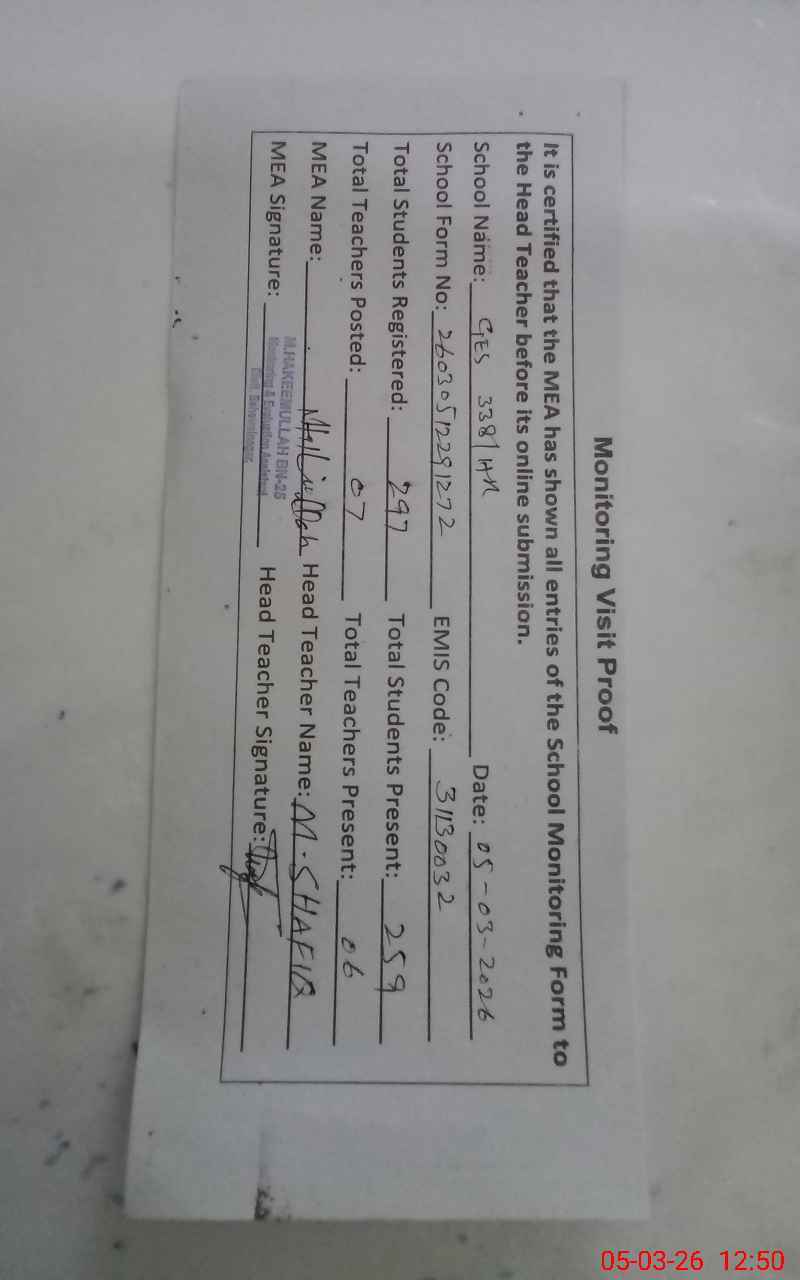 Monitoring Visit Proof
It is certified that the MEA has shown all entries of the School Monitoring Form to
the Head Teacher before its online submission.
School Name: GES 338/HR Date: 05-03-2026
School Form No: 26030512291272 EMIS Code: 31130032
Total Students Registered: 297 Total Students Present: 259
Total Teachers Posted: 07 Total Teachers Present: 06
MEA Name: Head Teacher Name: M. SHAFIQ
M.HAKEEMULLAH BN-25
MEA Signature: Head Teacher Signature:
Monitoring & Evaluation Assistant
Distt. Bahawalnagar
05-03-26 12:50